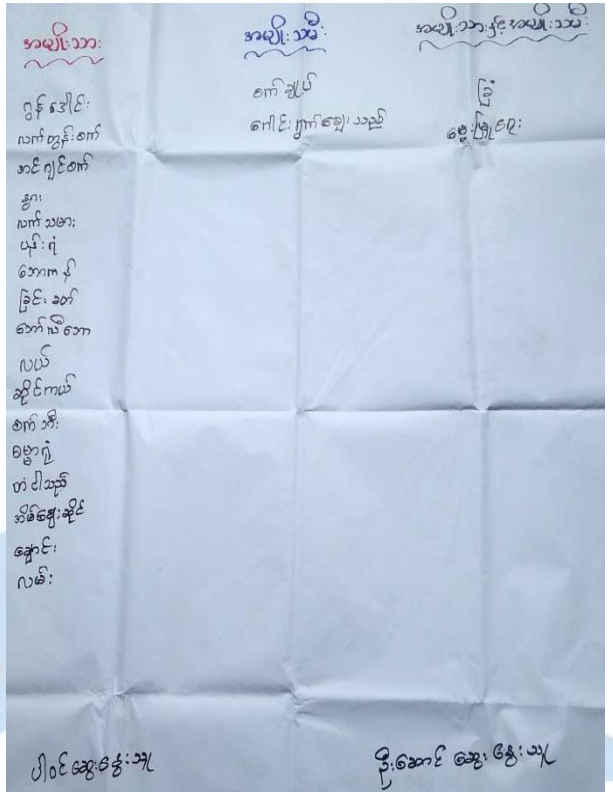 အမျိုးသား
ဂွန်ဒေါင်း
လက်တွန်းစက်
အင်ဂျင်စက်
နွား
လက်သမား
ပန်းရံ
ဘောကန်
ခြင်းခတ်
ဘော်လီဘော
လယ်
ဆိုင်ကယ်
စက်ဘီး
ဓမ္မာရုံ
တံငါသည်
အိမ်ဈေးဆိုင်
ချောင်း
လမ်း
အမျိုးသမီး
စက်ချုပ်
ခေါင်းရွက်ဈေးသည်
အမျိုးသားနှင့်အမျိုးသမီး
ခြံ
မွေးမြူရေး
ပါဝင်ဆွေးနွေးသူ
ဦးဆောင်ဆွေးနွေးသူ